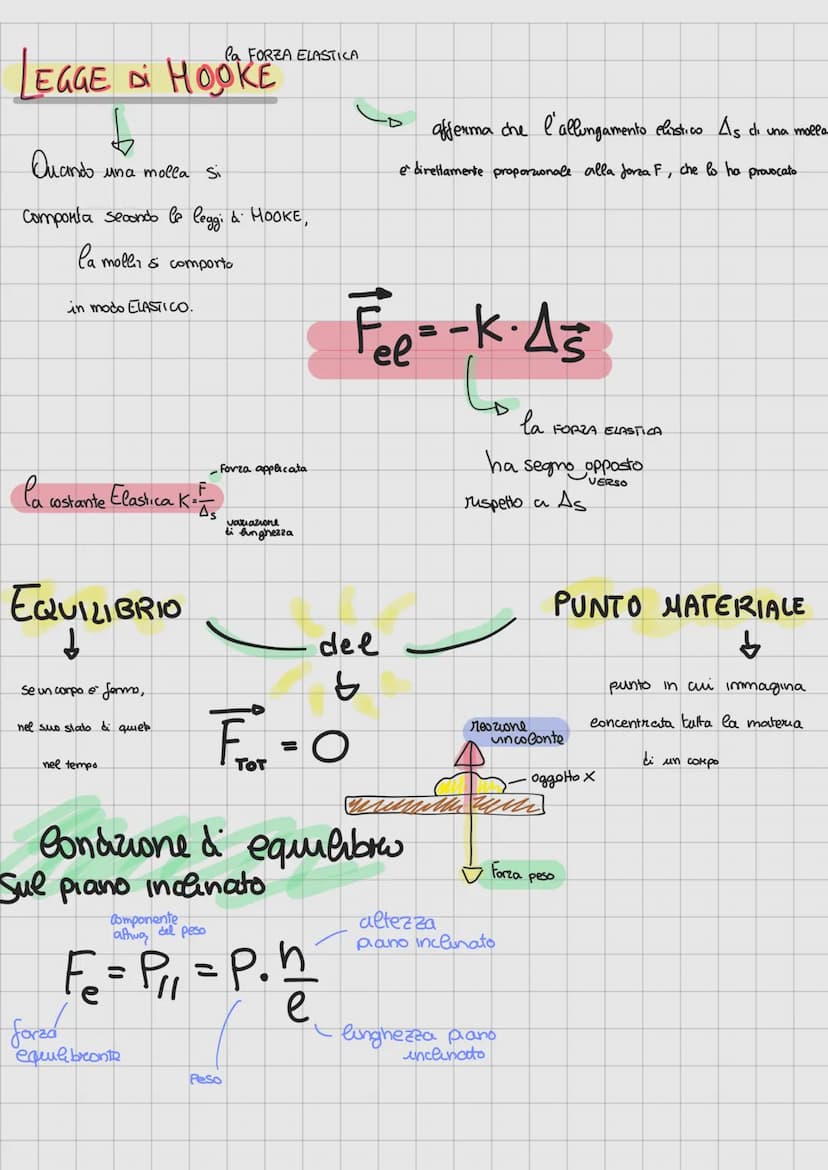 la FORZA ELASTICA
LEGGE di HOOKE
afferma che l'allungamento elastico Δs di una molla
e' direttamente proporzionale alla forza F, che lo ha provocato
Quando una molla si
comporta secondo le leggi di HOOKE,
la molla si comporta
in modo ELASTICO.
F el = -K · Δs
la FORZA ELASTICA
ha segno opposto
VERSO
rispetto a Δs
Forza applicata
la costante Elastica K = F/Δs
variazione
di lunghezza
EQUILIBRIO
del
PUNTO MATERIALE
se un corpo e' fermo,
nel suo stato di quiete
nel tempo
F TOT = 0
punto in cui immagina
concentrata tutta la materia
di un corpo
reazione
vincolante
oggetto X
Forza peso
Condizione di equilibrio
sul piano inclinato
componente
attiva del peso
altezza
piano inclinato
Fe = P// = P · h/l
forza
equilibrante
peso
lunghezza piano
inclinato